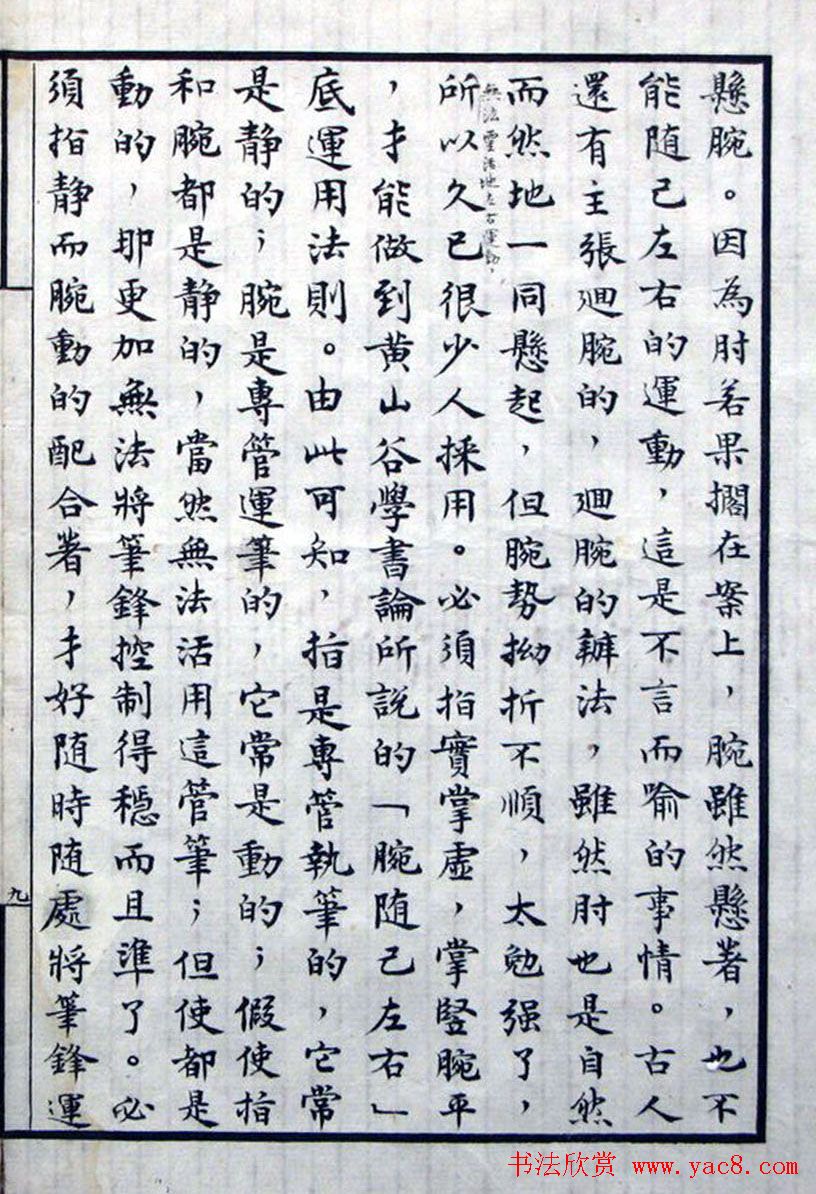 懸腕。因為肘若果擱在案上，腕雖然懸著，也不
能随己左右的運動，這是不言而喻的事情。古人
還有主張廻腕的，廻腕的辦法，雖然肘也是自然
而然地一同懸起，但腕势拗折不順，太勉强了，
無法靈活地左右運動，
所以久已很少人採用。必須指實掌虚，掌竪腕平
，才能做到黄山谷學書論所説的「腕随己左右」
底運用法則。由此可知，指是專管執筆的，它常
是静的；腕是專管運筆的，它常是動的；假使指
和腕都是静的，當然無法活用這管筆；但使都是
動的，那更加無法將筆鋒控制得穩而且準了。必
須指静而腕動的配合著，才好随時随處將筆鋒運
九
书法欣赏 www.yac8.com